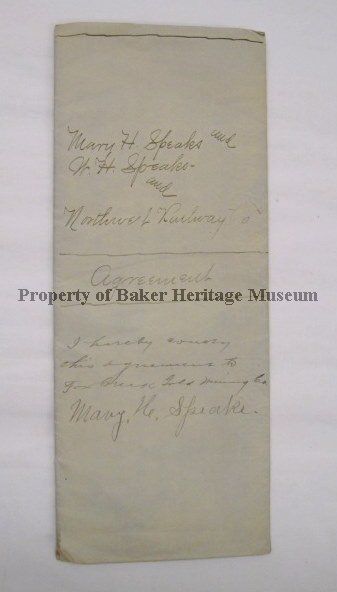 Mary H. Speaks and
W. H. Speaks-
and
Northwest Railway Co
Agreement
Property of Baker Heritage Museum
I hereby convey
this agreement to
Fox Creek Gold Mining Co
Mary, H, Speaks.